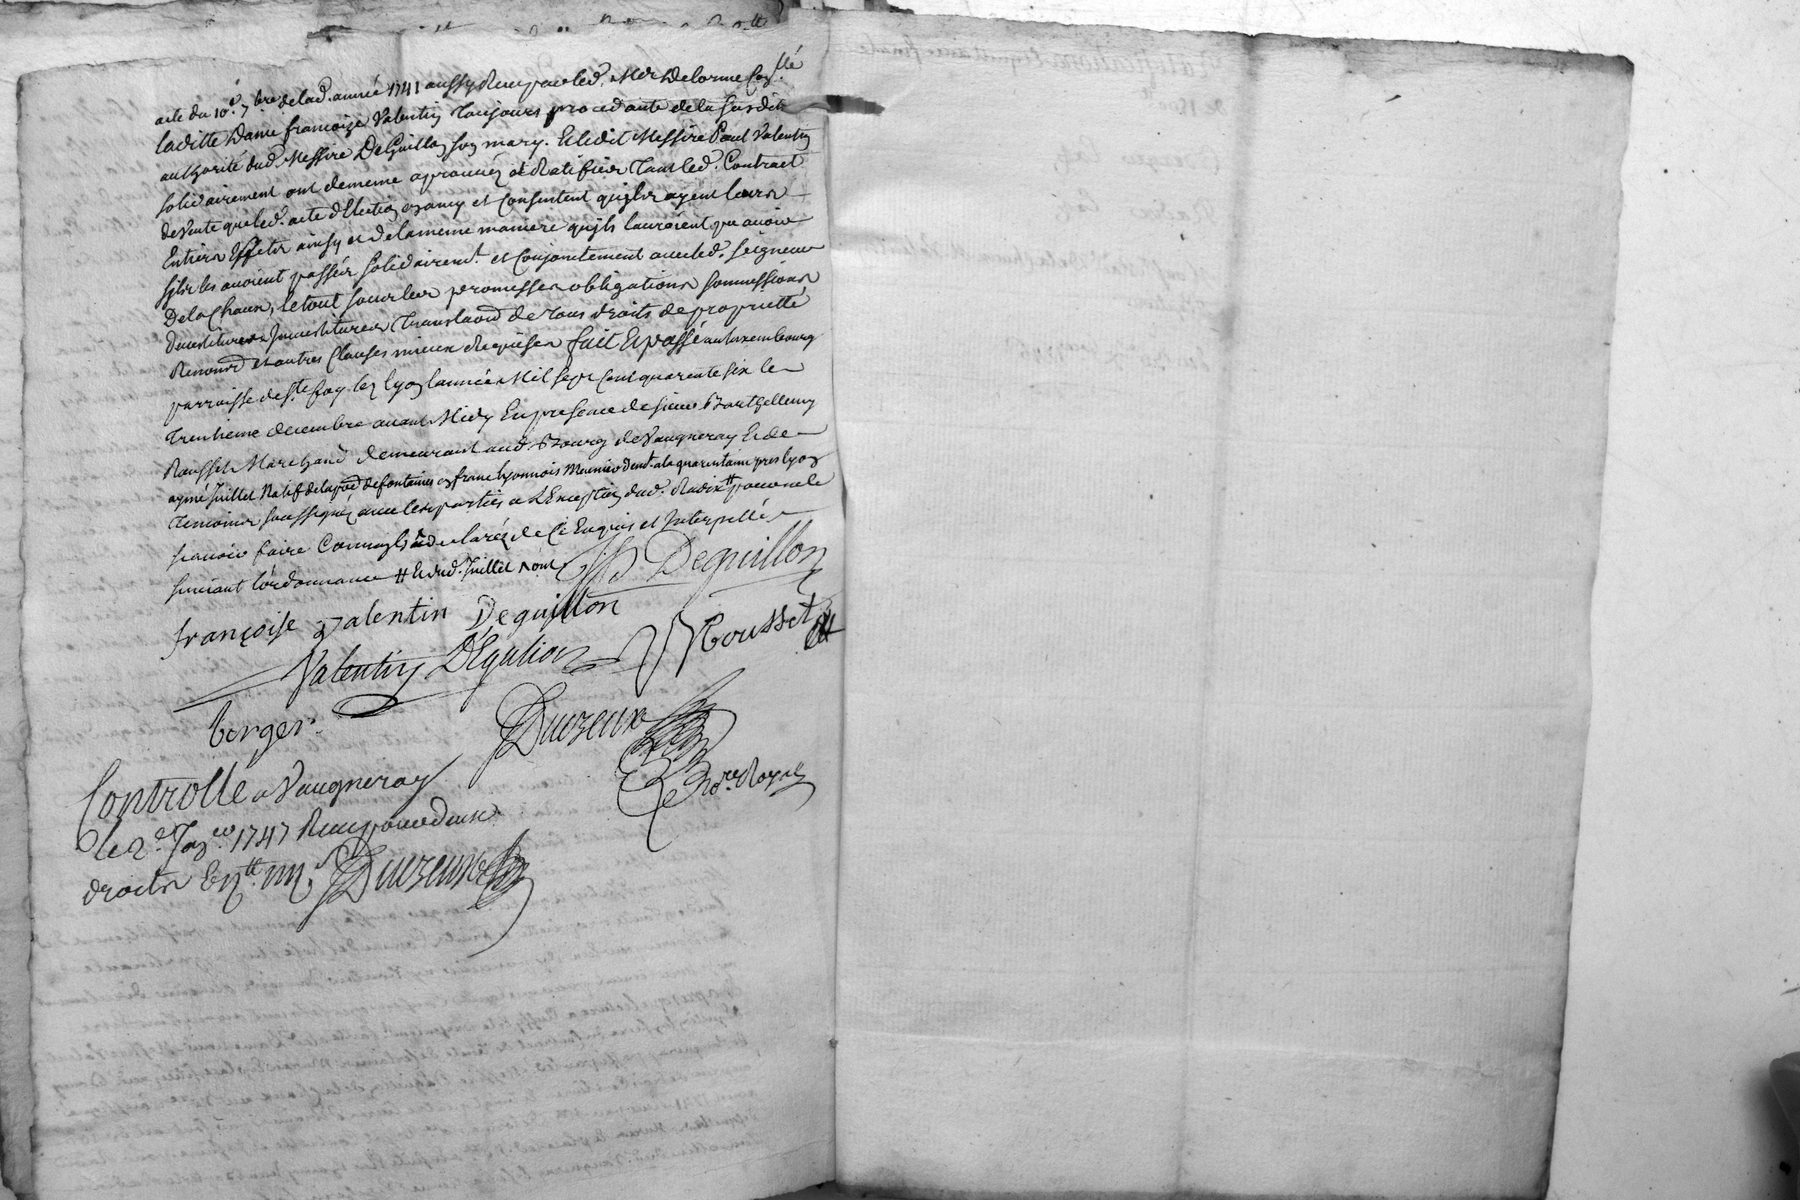 acte du 10.e 7bre de lad. année 1741 aussy Reçu par led. Mer Delorme Con.lle
laditte Dame françoize Valentin Toujours procedante de la susdite
authorité dud. Messire DeGuillon son mary. Et ledit Messire Paul Valentin
solidairement ont dememe aprouvéz et Ratifiéz Tant led. Contract
de Vente que led. acte d'Election en amy et Consentent quijls ayent leurs
Entiers Effets ainsy et de la meme maniere quijls lauroient pu avoir
sijls les avoient passés solidairemt. et Conjointement avec led. seigneur
Dela Chaux, le tout sous les promesses obligations soumissions
devestitures Jnvestitures Translaon de tous droits de proprietté
Renonon et autres Clauses mieux Requises fait Et passé au luxembourg
parroisse de Ste foy les lyon lannée Mil sept Cent quarente six le
Trentieme decembre avant Midy En presence de sieur Barthellemy
Rousset Marchand demeurant aud. Bourg de Vaugneray Et de
aymé Juillet Natif de la pnd de fontaines en franc lyonnois Meunier demt. a la quarentaine pres lyon
Temoins soussignez avec les parties a L'Exception dud. Radix # pour ne le
scavoir faire Comme jls ont declaréz de Ce Enquis et Interpellés
suivant l'ordonnance # Et dud. Juillet nont
Deguillon
françoise valentin Deguillon
Valentin D'Eguilion Rousset
berger Duvzeux
Nore. Royal
Controlle a Vaugneray
le 2.e Janer. 1747 Reçu pour deux
droits
Duvzeux